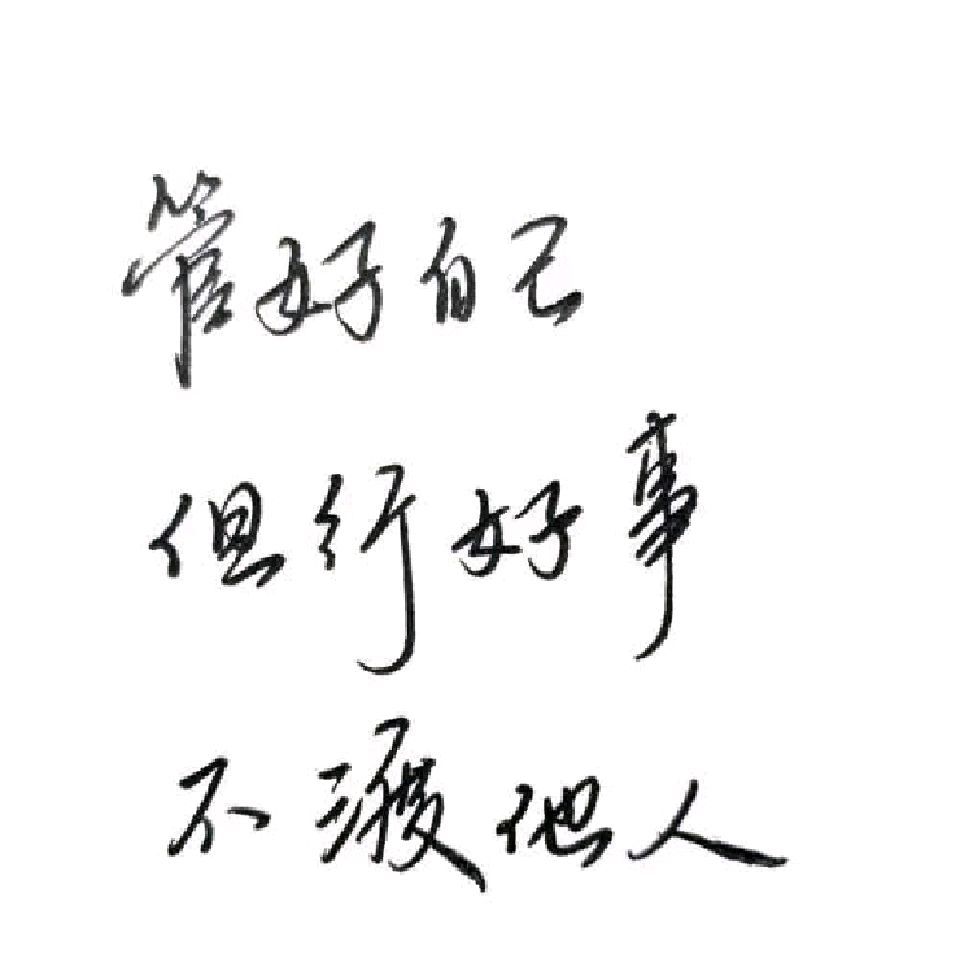 管好自己
但行好事
不渡他人